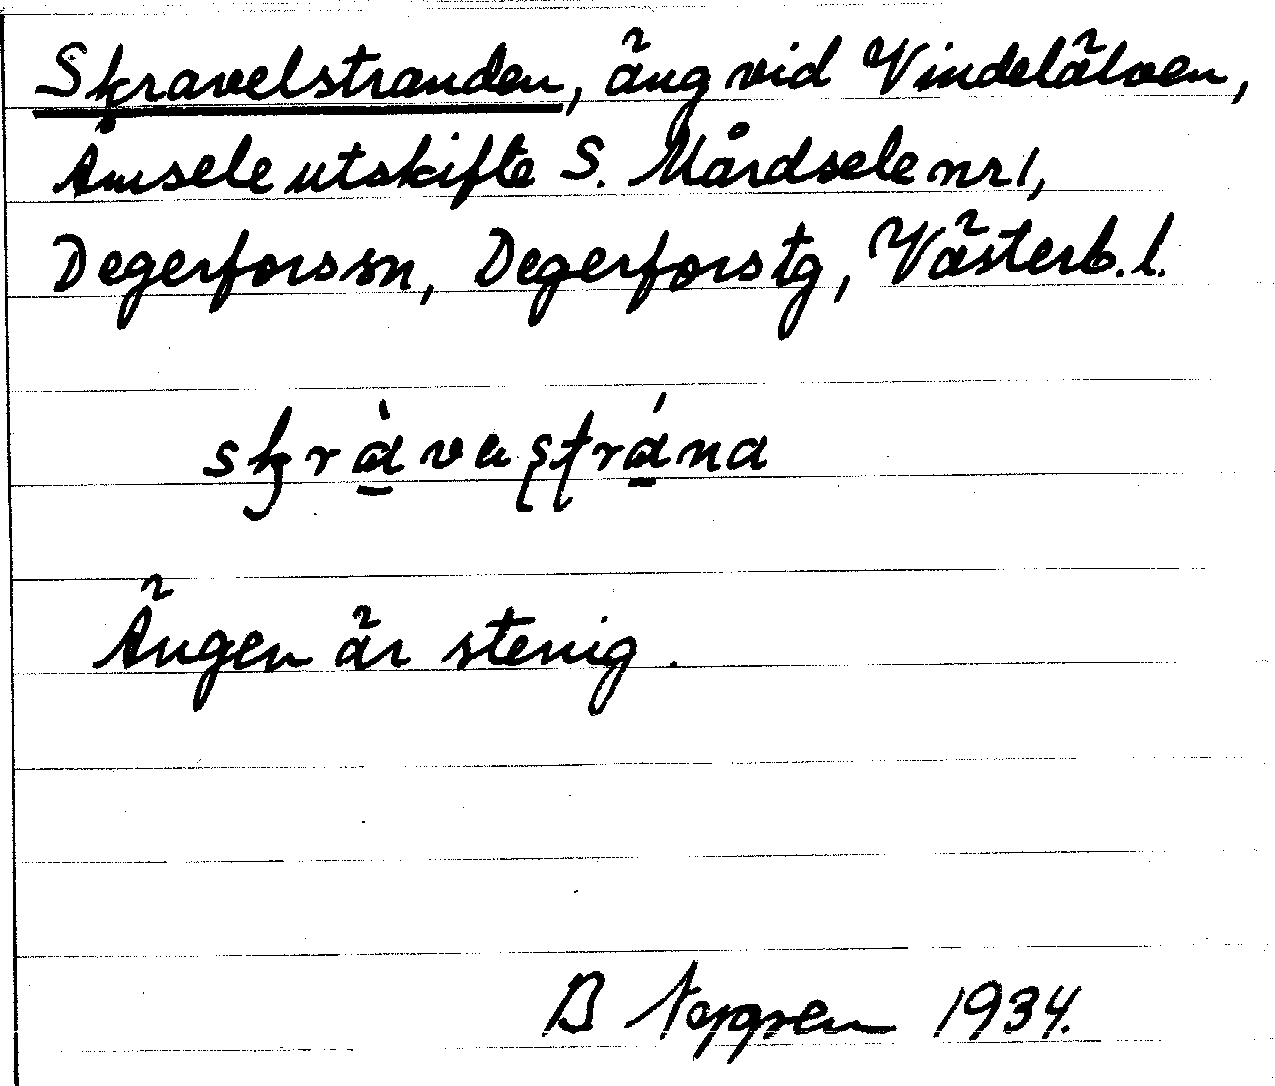 Skravelstranden, äng vid Vindelälven,
Åmsele utskifte S. Mårdsele nr 1,
Degerfors sn, Degerfors tg, Västerb. l.
skràvarstrána
Ängen är stenig.
B 1934.